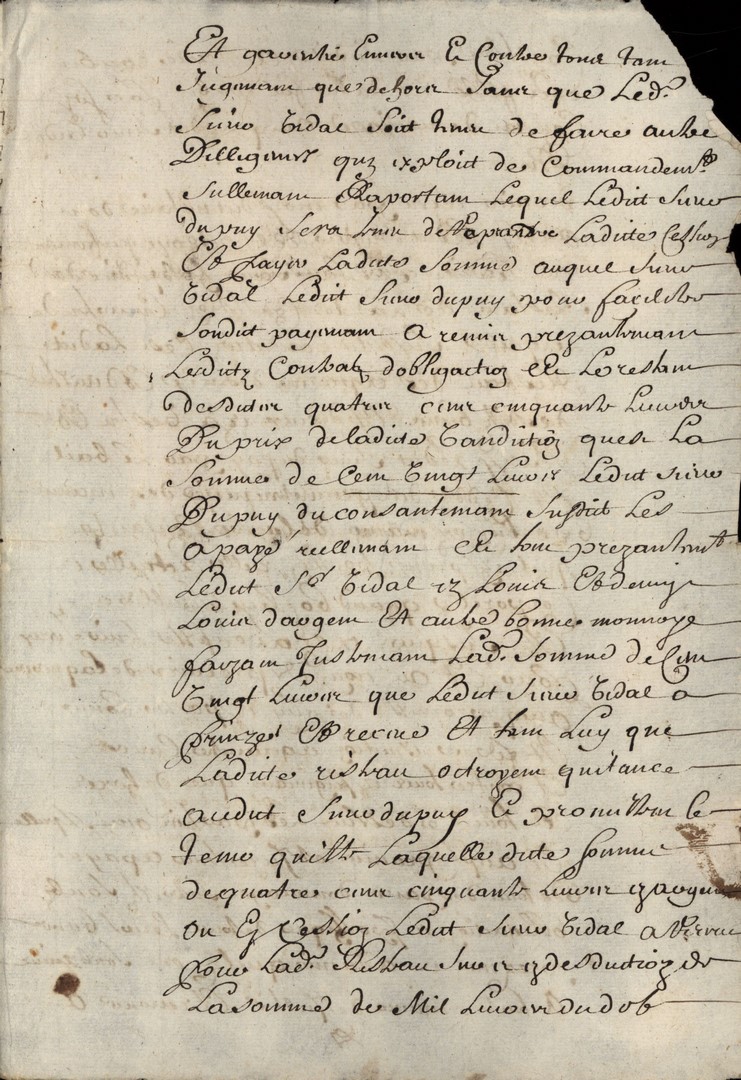 Et garentie Envers Et Contre tous tant
Jugemant que dehors sans que Led.
Sieur Vidal soit tenu de faire autre
Dilligences quy exploit de Commandemt
sullemant Raportant Lequel Ledit Sieur
dupuy sera tenu de Raprandre Ladite Cession
Et payer Ladite somme auquel sieur
Vidal Ledit Sieur dupuy pour faciliter
sondit payemant a remis prezantemant
Lesditz Contratz d'obligaction Et Le restant
desdites quatre cens cinquante Livres
Du prix de ladite Vandiction quest La
somme de Cent Vingt Livres Ledit sieur
Dupuy du consantemant susdit Les
a payé réellemant Et tout prezantemt
Ledit Sr Vidal ez Louis Et demis
Louis dargent Et autre bonne monnoye
faizant Justemant Lad. somme de Cent
Vingt Livres que Ledit sieur Vidal a
prinzes Et receue Et tant Luy que
Ladite risteau octroyent quitance
audit sieur dupuy Et promettent le
tenir quitte Laquelle dite somme
de quatre cens cinquante Livres ez argent
ou Ez Cession Ledit sieur Vidal a
pour Lad. Risteau ez desduction de
La somme de Mil Livres du dot